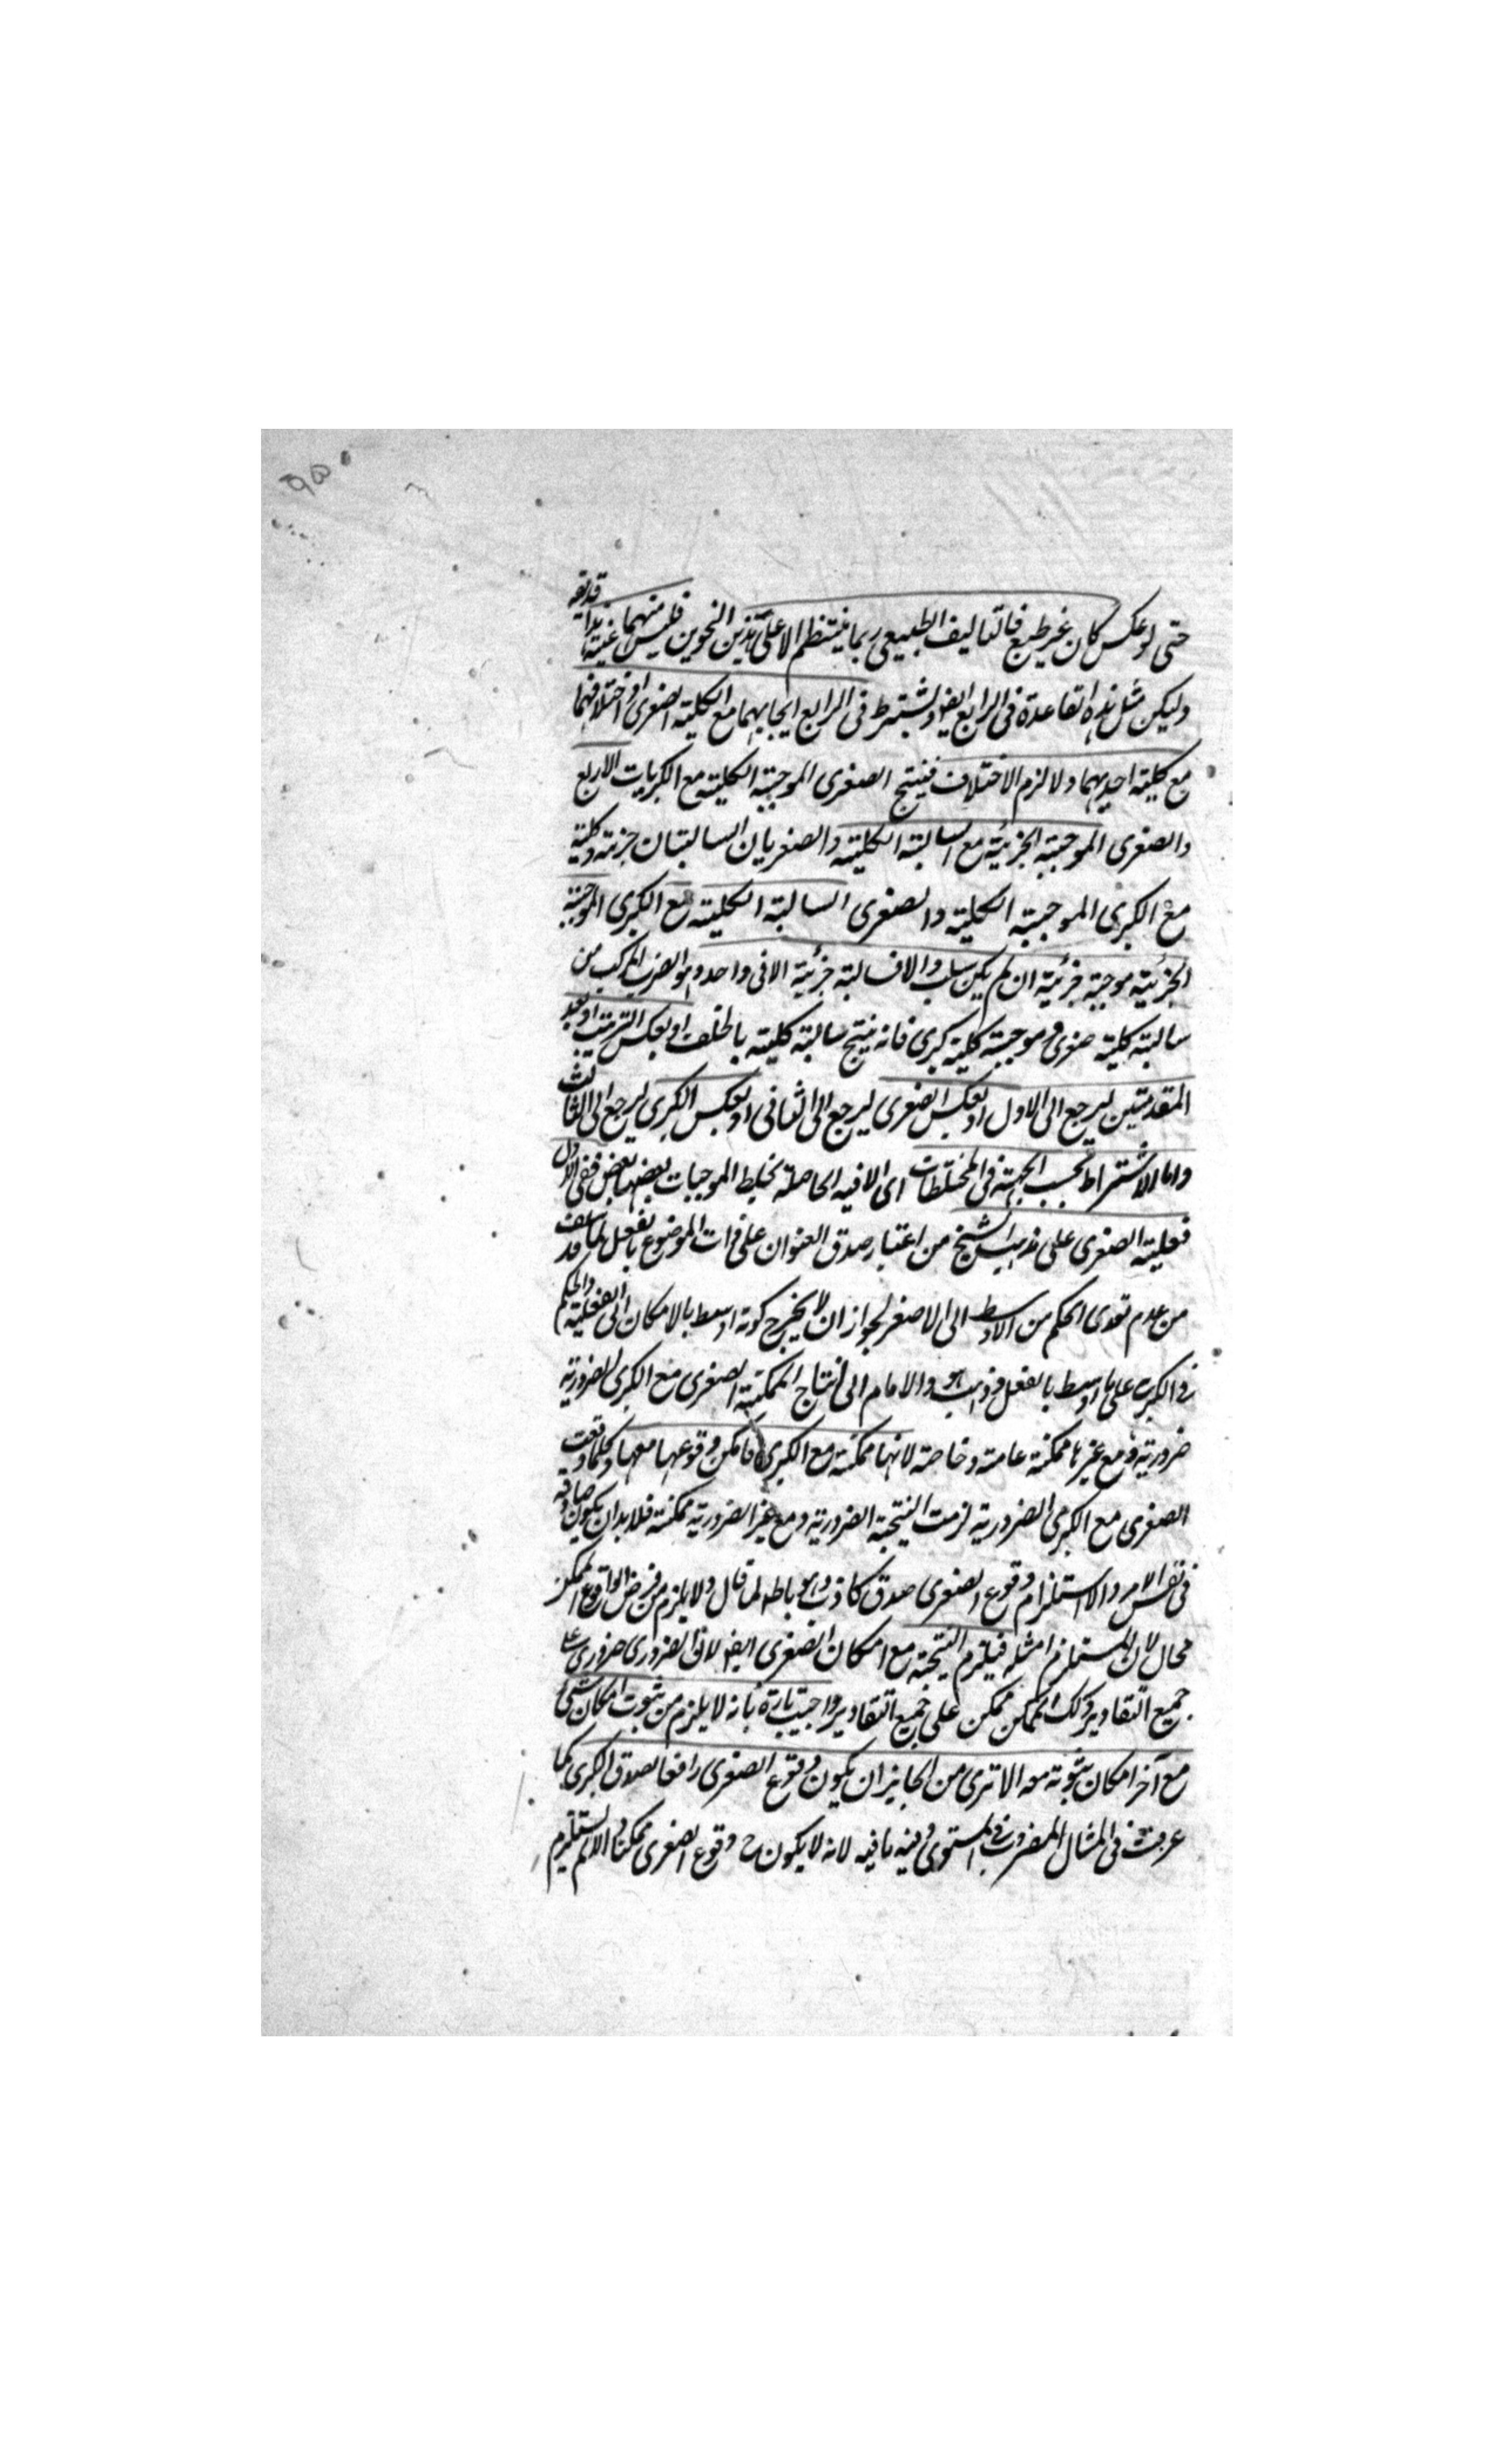 ۹۵
حتى لو عكس كان غير طبع فالتاليف الطبيعى ربما ينتظم الا على هذين النحوين فليس منهما غنية هذا قد يقع
وليكن مثل هذه القاعدة فى الرابع ايضا ويشترط فى الرابع ايجابهما مع كلية الصغرى او اختلافهما
مع كلية احديهما ولا لزم الاختلاف فينتج الصغرى الموجبة الكلية مع الكبريات الاربع
والصغرى الموجبة الجزئية مع السالبة الكلية والصغريان السالبتان جزئية وكلية
مع الكبرى الموجبة الكلية والصغرى السالبة الكلية مع الكبرى الموجبة
الجزئية موجبة جزئية ان لم يكن سلب والا فسالبة جزئية الا فى واحد وهو الضرب المركب من
سالبة كلية صغرى وموجبة كلية كبرى فانه ينتج سالبة كلية بالخلف او بعكس الترتيب او بعد
المقدمتين ليرجع الى الاول او بعكس الصغرى ليرجع الى الثانى او بعكس الكبرى ليرجع الى الثالث
واما الاشتراط بحسب الجهة فى المختلطات اى الاقيسة الحاصلة بخلط الموجبات بعضها بعض ففى الاول
فعلية الصغرى على مذهب الشيخ من اعتبار صدق العنوان على ذات الموضوع بالفعل لما قد سلف
من عدم تعدى الحكم من الاوسط الى الاصغر لجواز ان لا يخرج كونه اوسط بالامكان الى الفعلية والحكم
فى الكبرى على ما اوسط بالفعل وذهب هو والامام الى انتاج الممكنة الصغرى مع الكبرى الضرورية
ضرورية ومع غيرها ممكنة عامة وخاصة لانها ممكنة مع الكبرى فامكن وقوعها معها وكلما وقعت
الصغرى مع الكبرى الضرورية لزمت النتيجة الضرورية ومع غير الضرورية ممكنة فلا بد ان يكون صادقه
فى نفس الامر والا استلزام وقوع الصغرى صدق كاذب وهو باطل لما قال ولا يلزم من فرض الواقع الممكن
محال لان المستلزم مثله فيلزم النتيجة مع امكان الصغرى ايضا لان الضرورى ضرورى على
جميع التقادير وكذلك الممكن ممكن على جميع التقادير واجيب تارة بانه لا يلزم من ثبوت امكان شئ
مع آخر امكان ثبوته معه الا ترى من الجايز ان يكون وقوع الصغرى رافعا لصدق الكبرى كما
عرفت فى المثال المضروب فى المستوى وفيه ما فيه لانه لا يكون ح وقوع الصغرى ممكنا والا لم يستلزم